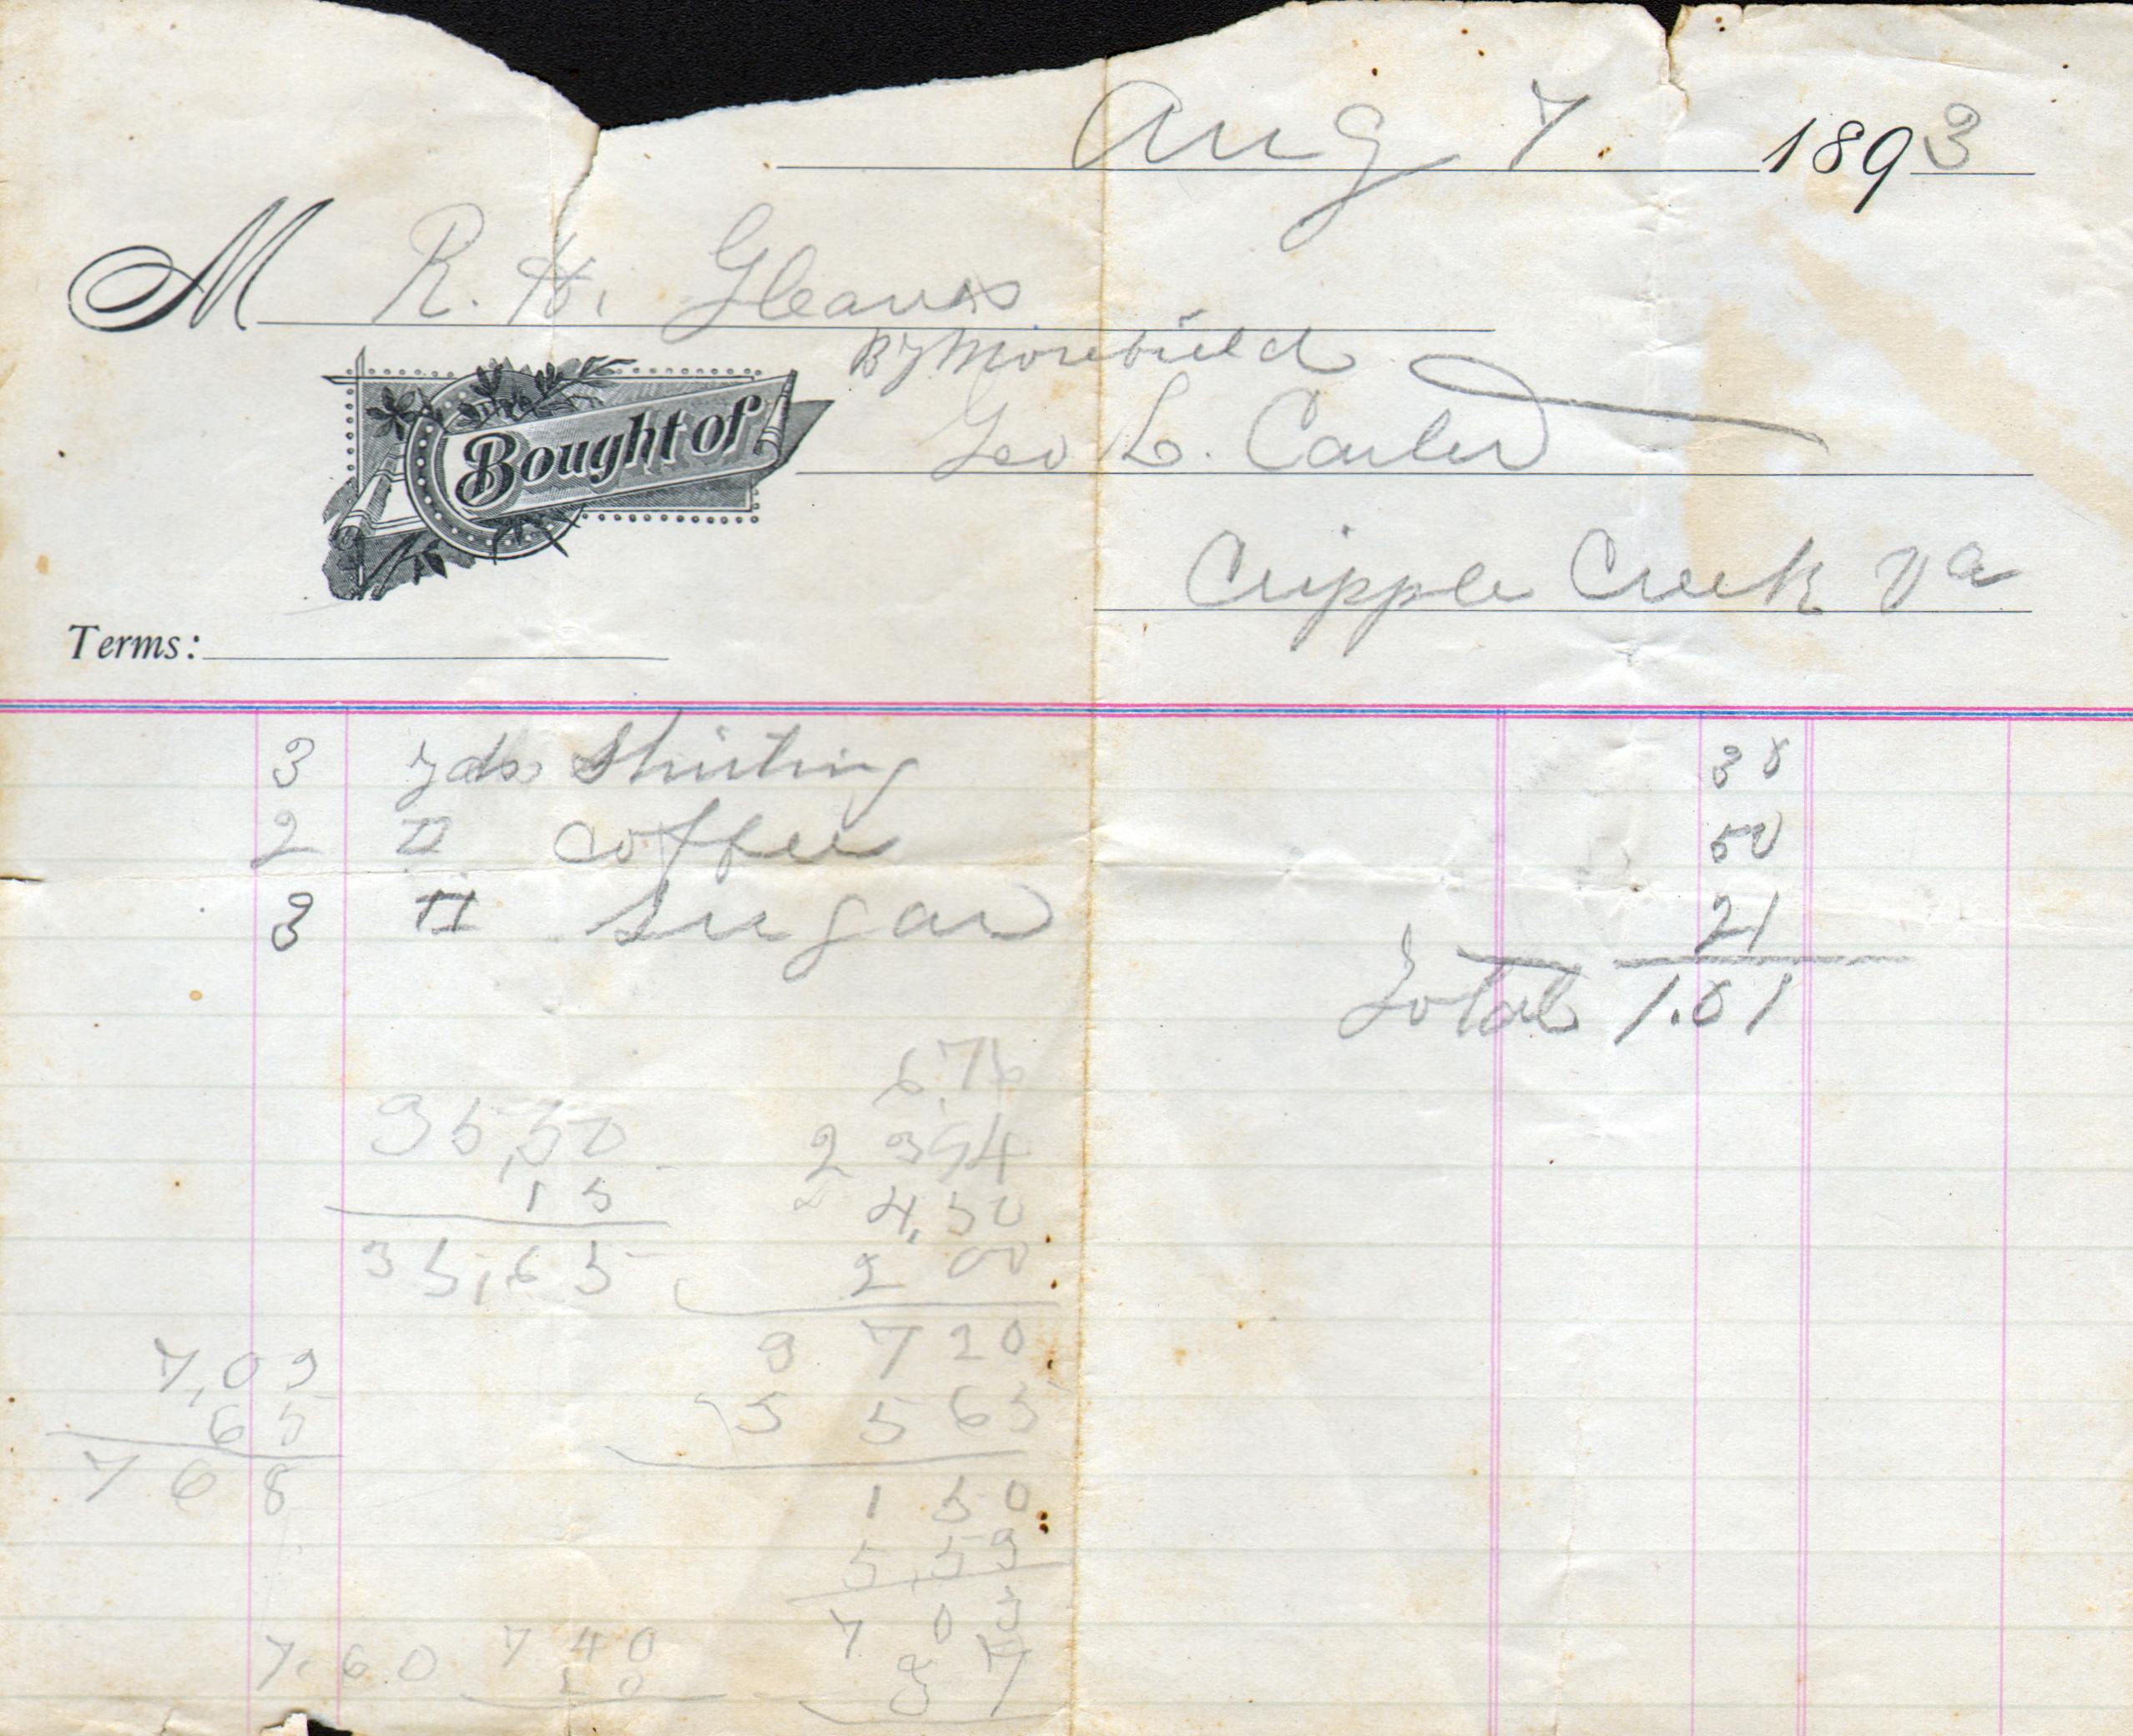 Aug 7. 1893
M R. H. Gleaves
By Morehield
Bought of Geo L. Carter
Cripple Creek Va
Terms:
3 yds Shirting 38
2 # Coffee 50
3 # Sugar 21
Total 1.01
6.76
35,50 2394
15 4.50
35,65 2 00
7,03 3720
65 3565
768 150
5,53
703
7.60 740 37
20